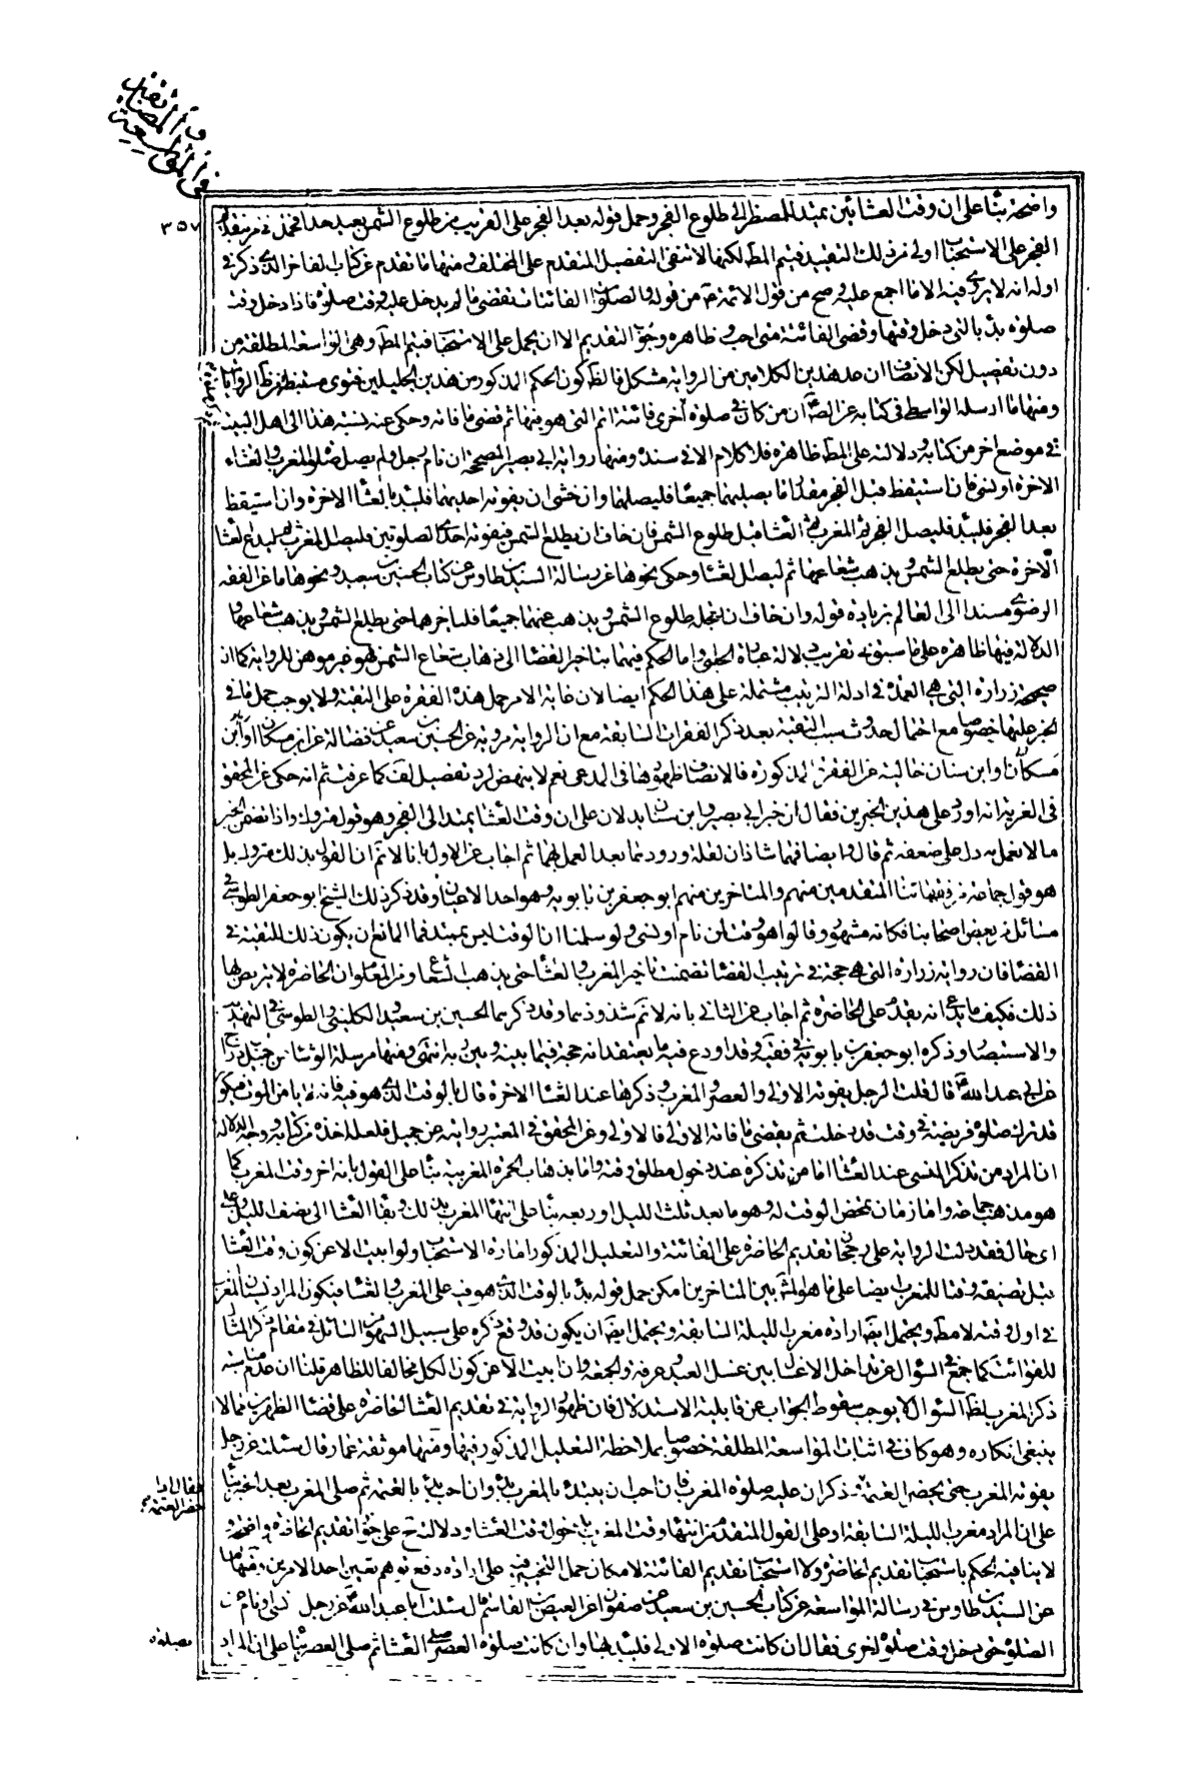 في المواسعة
والمضايقة
٣٥٧
واضحة بناء على ان وقت العشائين يمتد للمضطر الى طلوع الفجر وحمل قوله بعد الفجر على القريب من طلوع الشمس بعيد جدا
الفجر على الاستحباب اولى من ذلك التقييد فيتم المط لكنها لا تنفى التفصيل المتقدم على المختلف ومنها ما تقدم عن كتاب الفاخر الذى ذكر في
اوله انه لا يروى فيه الا ما اجمع عليه وصح من قول الائمة من قوله والصلوات الفائتات تقضى ما لم يدخل عليه وقت صلوة فاذا دخل وقت
صلوة بدء بالتى دخل وقتها وقضى الفائتة متى احب وظاهره وجوب التقديم الا ان يحمل على الاستحباب فيتم المط وهى المواسعة المطلقة من
دون تفصيل لكن الانصاف ان عد هذين الكلامين من الرواية مشكل فالظ كون الحكم المذكور من هذين الجليلين فتوى مستنبطة من ظ الروايات
ومنها ما ارسله الواسطى في كتابه عن الص ان من كان في صلوة ثم ذكر اخرى فائتة اتم التى هو فيها ثم قضى ما فاته وحكى عنه نسبة هذا الى اهل البيت
في موضع اخر من كتابه ودلالته على المط ظاهرة فلا كلام الا في سنده ومنها رواية ابى بصير المصححة ان نام رجل ولم يصل صلوة المغرب والعشاء
الاخرة او نسى فان استيقظ قبل الفجر مقدار ما يصليهما جميعا فليصلهما وان خشى ان يفوته احديهما فليبدء بالعشاء الاخرة وان استيقظ
بعد الفجر فليبدء فليصل الفجر ثم المغرب ثم العشاء قبل طلوع الشمس فان خاف ان يطلع الشمس فيفوته احدى الصلوتين فليصل المغرب ويدع العشاء
الاخرة حتى يطلع الشمس ويذهب شعاعها ثم ليصل العشاء وحكى نحوها عن رسالة السيد بن طاوس عن كتاب الحسين بن سعيد ونحوها ما عن الفقه
الرضوى مسندا الى العالم بزيادة قوله وان خاف ان يعجله طلوع الشمس ويذهب عنهما جميعا فليؤخرهما حتى يطلع الشمس ويذهب شعاعها
الدلالة فيها ظاهرة على ما سبق في تقريب دلالة عبارة الحلبى واما الحكم فيهما بتاخير القضاء الى ذهاب شعاع الشمس فهو غير موهن للرواية كما ان
صحيحة زرارة التى هى العمدة في ادلة الترتيب مشتملة على هذا الحكم ايضا لان غاية الامر حمل هذه الفقرة على التقية ولا يوجب حمل ما في
الخبر عليها خصوصا مع احتمال حدوث سبب التقية بعد ذكر الفقرات السابقة مع ان الرواية مروية عن الحسين بن سعيد عن فضالة عن ابن مسكان او ابن
مسكان وابن سنان خالية عن الفقرة المذكورة فالانصاف ظهورها في المدعى نعم لا ينهض لرد تفصيل لف كما عرفت ثم انه حكى عن المحقق
في العزية انه اورد على هذين الخبرين فقال ان خبر ابى بصير وابن سنان يدلان على ان وقت العشاء يمتد الى الفجر وهو قول متروك واذا تضمن الخبر
ما لا يعمل به دل على ضعفه ثم قال وايضا فهما شاذان لقلة ورودهما بعد العمل بهما ثم اجاب عن الاول بانا لا نم ان القول بذلك متروك بل
هو قول جماعة من فقهائنا المتقدمين منهم والمتاخرين منهم ابو جعفر بن بابويه وهو احد الاعيان وقد ذكر ذلك الشيخ ابو جعفر الطوسى في
مسائل من بعض اصحابنا فكانه مشهور وقالوا هو وقت لمن نام او نسى ولو سلمنا ان الوقت ليس بممتد فما المانع ان يكون ذلك للتقية في
القضاء فان رواية زرارة التى هى حجة في ترتيب القضاء تضمنت تاخير المغرب والعشاء حتى يذهب الشعاع ومن المعلوم ان الحاضرة لا يتربص بها
ذلك فكيف ما يدعى انه يقدم على الحاضرة ثم اجاب عن الثانى بانه لا نم شذوذهما وقد ذكرهما الحسين بن سعيد والكلينى والطوسى في التهذيب
والاستبصار وذكره ابو جعفر بن بابويه في فقيه وقد اودع فيه ما يعتقد انه حجة فيما بينه وبين ربه انتهى ومنها مرسلة الوشاء عن جميل بن دراج
عن ابى عبد الله قال قلت الرجل يفوته الاولى والعصر والمغرب وذكرها عند العشاء الاخرة قال يبدء بالوقت الذى هو فيه فانه لا يامن الموت فيكون
قد ترك صلوة فريضة في وقت قد دخلت ثم يقضى ما فاته الاولى فالاولى وعن المحقق في المعتبر روايته عن جميل فلعله اخذه من كتابه ووجه الدلالة
ان المراد من تذكر المنسى عند العشاء اما من تذكره عند دخول مطلق وقته واما بذهاب الحمرة المغربية بناء على القول بانه اخر وقت المغرب كما
هو مذهب جماعة واما زمان تمحض الوقت له وهو ما بعد ثلث الليل او ربعه بناء على انتهاء المغرب بذلك وبقاء العشاء الى نصف الليل وعلى
اى حال فقد دلت الرواية على رجحان تقديم الحاضرة على الفائتة والتعليل المذكور امارة الاستحباب ولو ابيت الا عن كون وقت العشاء
قبل تضيقه وقتا للمغرب ايضا على ما هو المش بين المتاخرين امكن حمل قوله يبدء بالوقت الذى هو فيه على المغرب والعشاء فيكون المراد نسيان المغرب
في اول وقته لا مط ويحتمل ايض ارادة مغرب الليلة السابقة ويحتمل ايض ان يكون قد وقع ذكره على سبيل السهو من السائل في مقام ذكر المثال
للفوائت كما جمع في السؤال عن تداخل الاغسال بين غسل العيد وعرفة والجمعة وان ابيت الا عن كون الكل مخالفا للظاهر قلنا ان عدم مناسبة
ذكر المغرب لظ السؤال لا يوجب سقوط الجواب عن قابلية الاستدلال فان ظهور الرواية في تقديم العشاء الحاضرة على قضاء الظهرين مما لا
ينبغى انكاره وهو كاف في اثبات المواسعة المطلقة خصوصا بملاحظة التعليل المذكور فيها ومنها موثقة عمار قال سئلته عن رجل
يفوته المغرب حتى يحضر العتمة وذكر ان عليه صلوة المغرب فان احب ان يبدء بالمغرب بدء وان احب بدء بالعتمة ثم صلى المغرب بعد الخبر بناء
فقال اذا
حضر العتمة
على ان المراد مغرب الليلة السابقة او على القول المتقدم من انتهاء وقت المغرب بدخول وقت العشاء ودلالته ح على جواز تقديم الحاضرة واضحة و
لا ينافيه الحكم باستحباب تقديم الحاضرة ولا استحباب تقديم الفائتة لامكان حمل التخيير فيه على ارادة دفع توهم تعين احد الامرين ومنها ما
عن السيد بن طاوس في رسالة المواسعة عن كتاب الحسين بن سعيد عن صفوان عن العيص بن القاسم قال سئلت ابا عبد الله عن رجل نسى او نام عن
الصلوة حتى دخل وقت صلوة اخرى فقال ان كانت صلوة الاولى فليبدء بها وان كانت صلوة العصر صلى العشاء ثم صلى العصر بناء على ان المراد
بصلوة